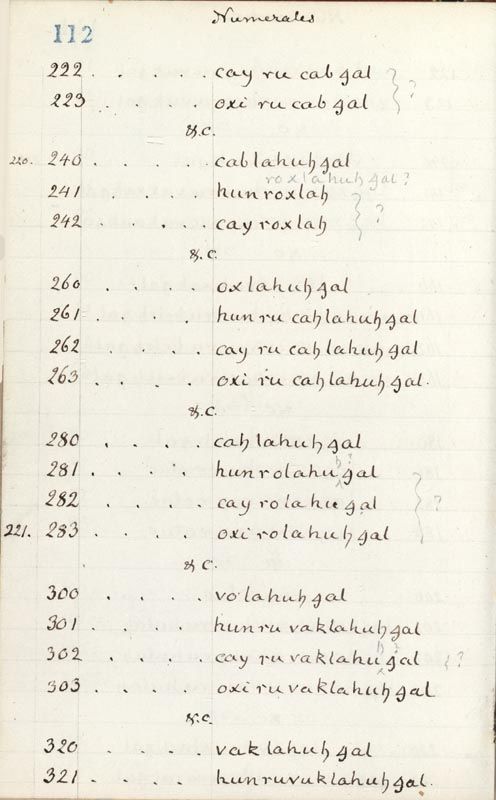 Numerales
112
222 . . . . cay ru cab gal } ?
223 . . . . oxi ru cab gal
&.c.
220. 240 . . . . cablahuhgal
roxlahuhgal?
241 . . . . hunroxlah } ?
242 . . . . cay roxlah
&.c.
260 . . . . oxlahuhgal
261 . . . . hun ru cahlahuhgal
262 . . . . cay ru cahlahuhgal
263 . . . . oxi ru cahlahuhgal.
&.c.
280 . . . . cahlahuhgal
h?
281 . . . . hunrolahu gal } ?
282 . . . . cay rolahu gal
221. 283 . . . . oxirolahuhgal
&c.
300 . . . . volahuhgal
301 . . . . hunruvaklahuhgal
h
302 . . . . cay ruvaklahu gal { ?
303 . . . . oxiruvaklahuhgal
&.c.
320 . . . . vaklahuhgal
321 . . . . hunruvuklahuhgal.